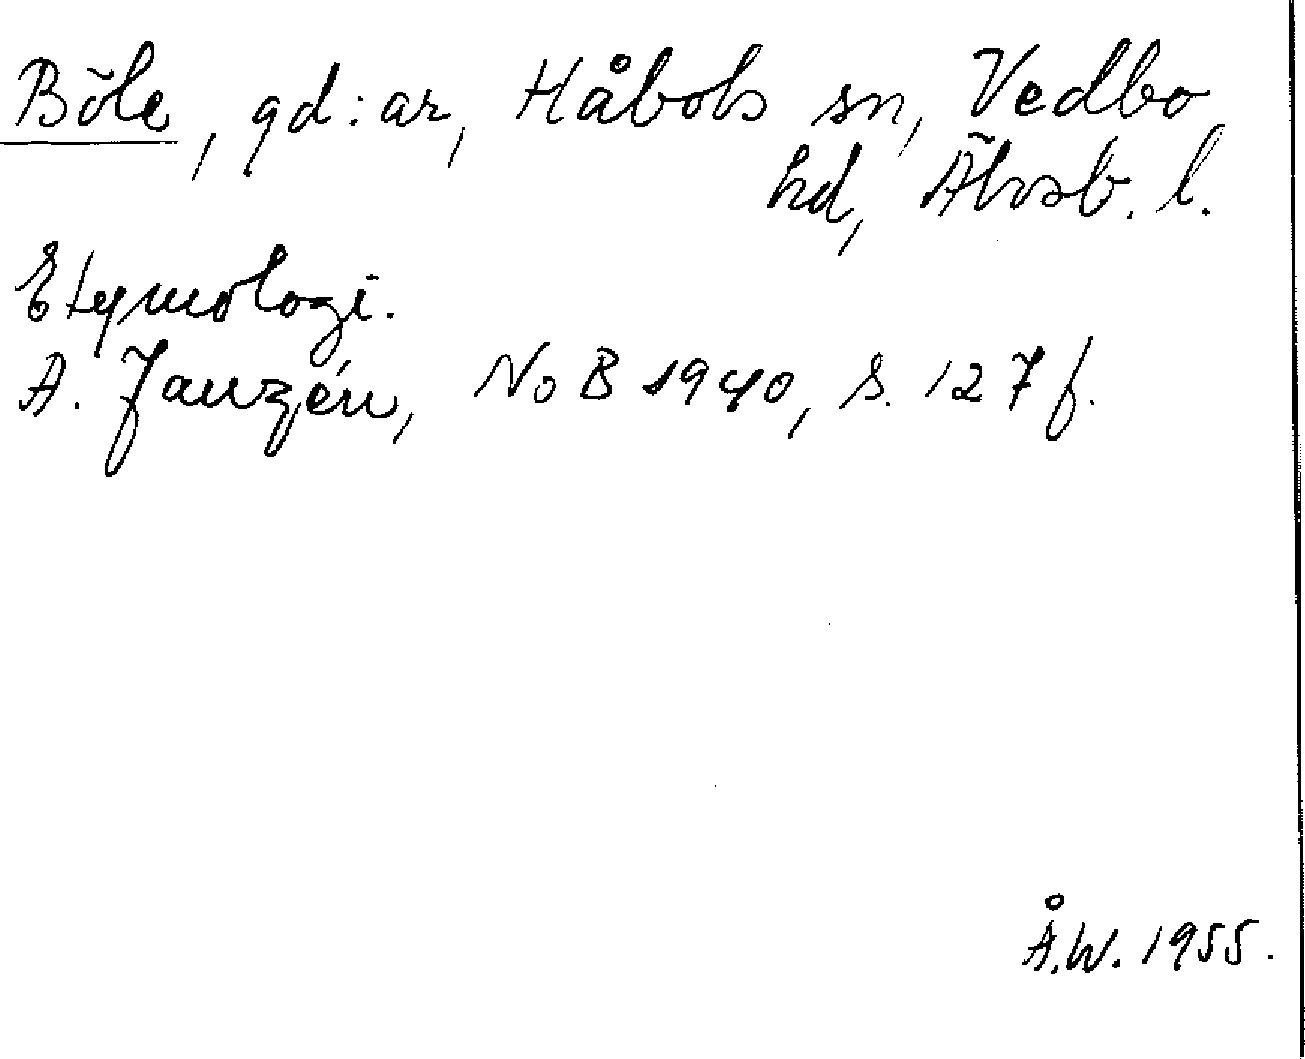 Böle, gd:ar, Håbols sn, Vedbo
hd, Älvsb. l.
Etymologi.
A. Janzén, NoB 1940, s. 127 f.
Å.W. 1955.